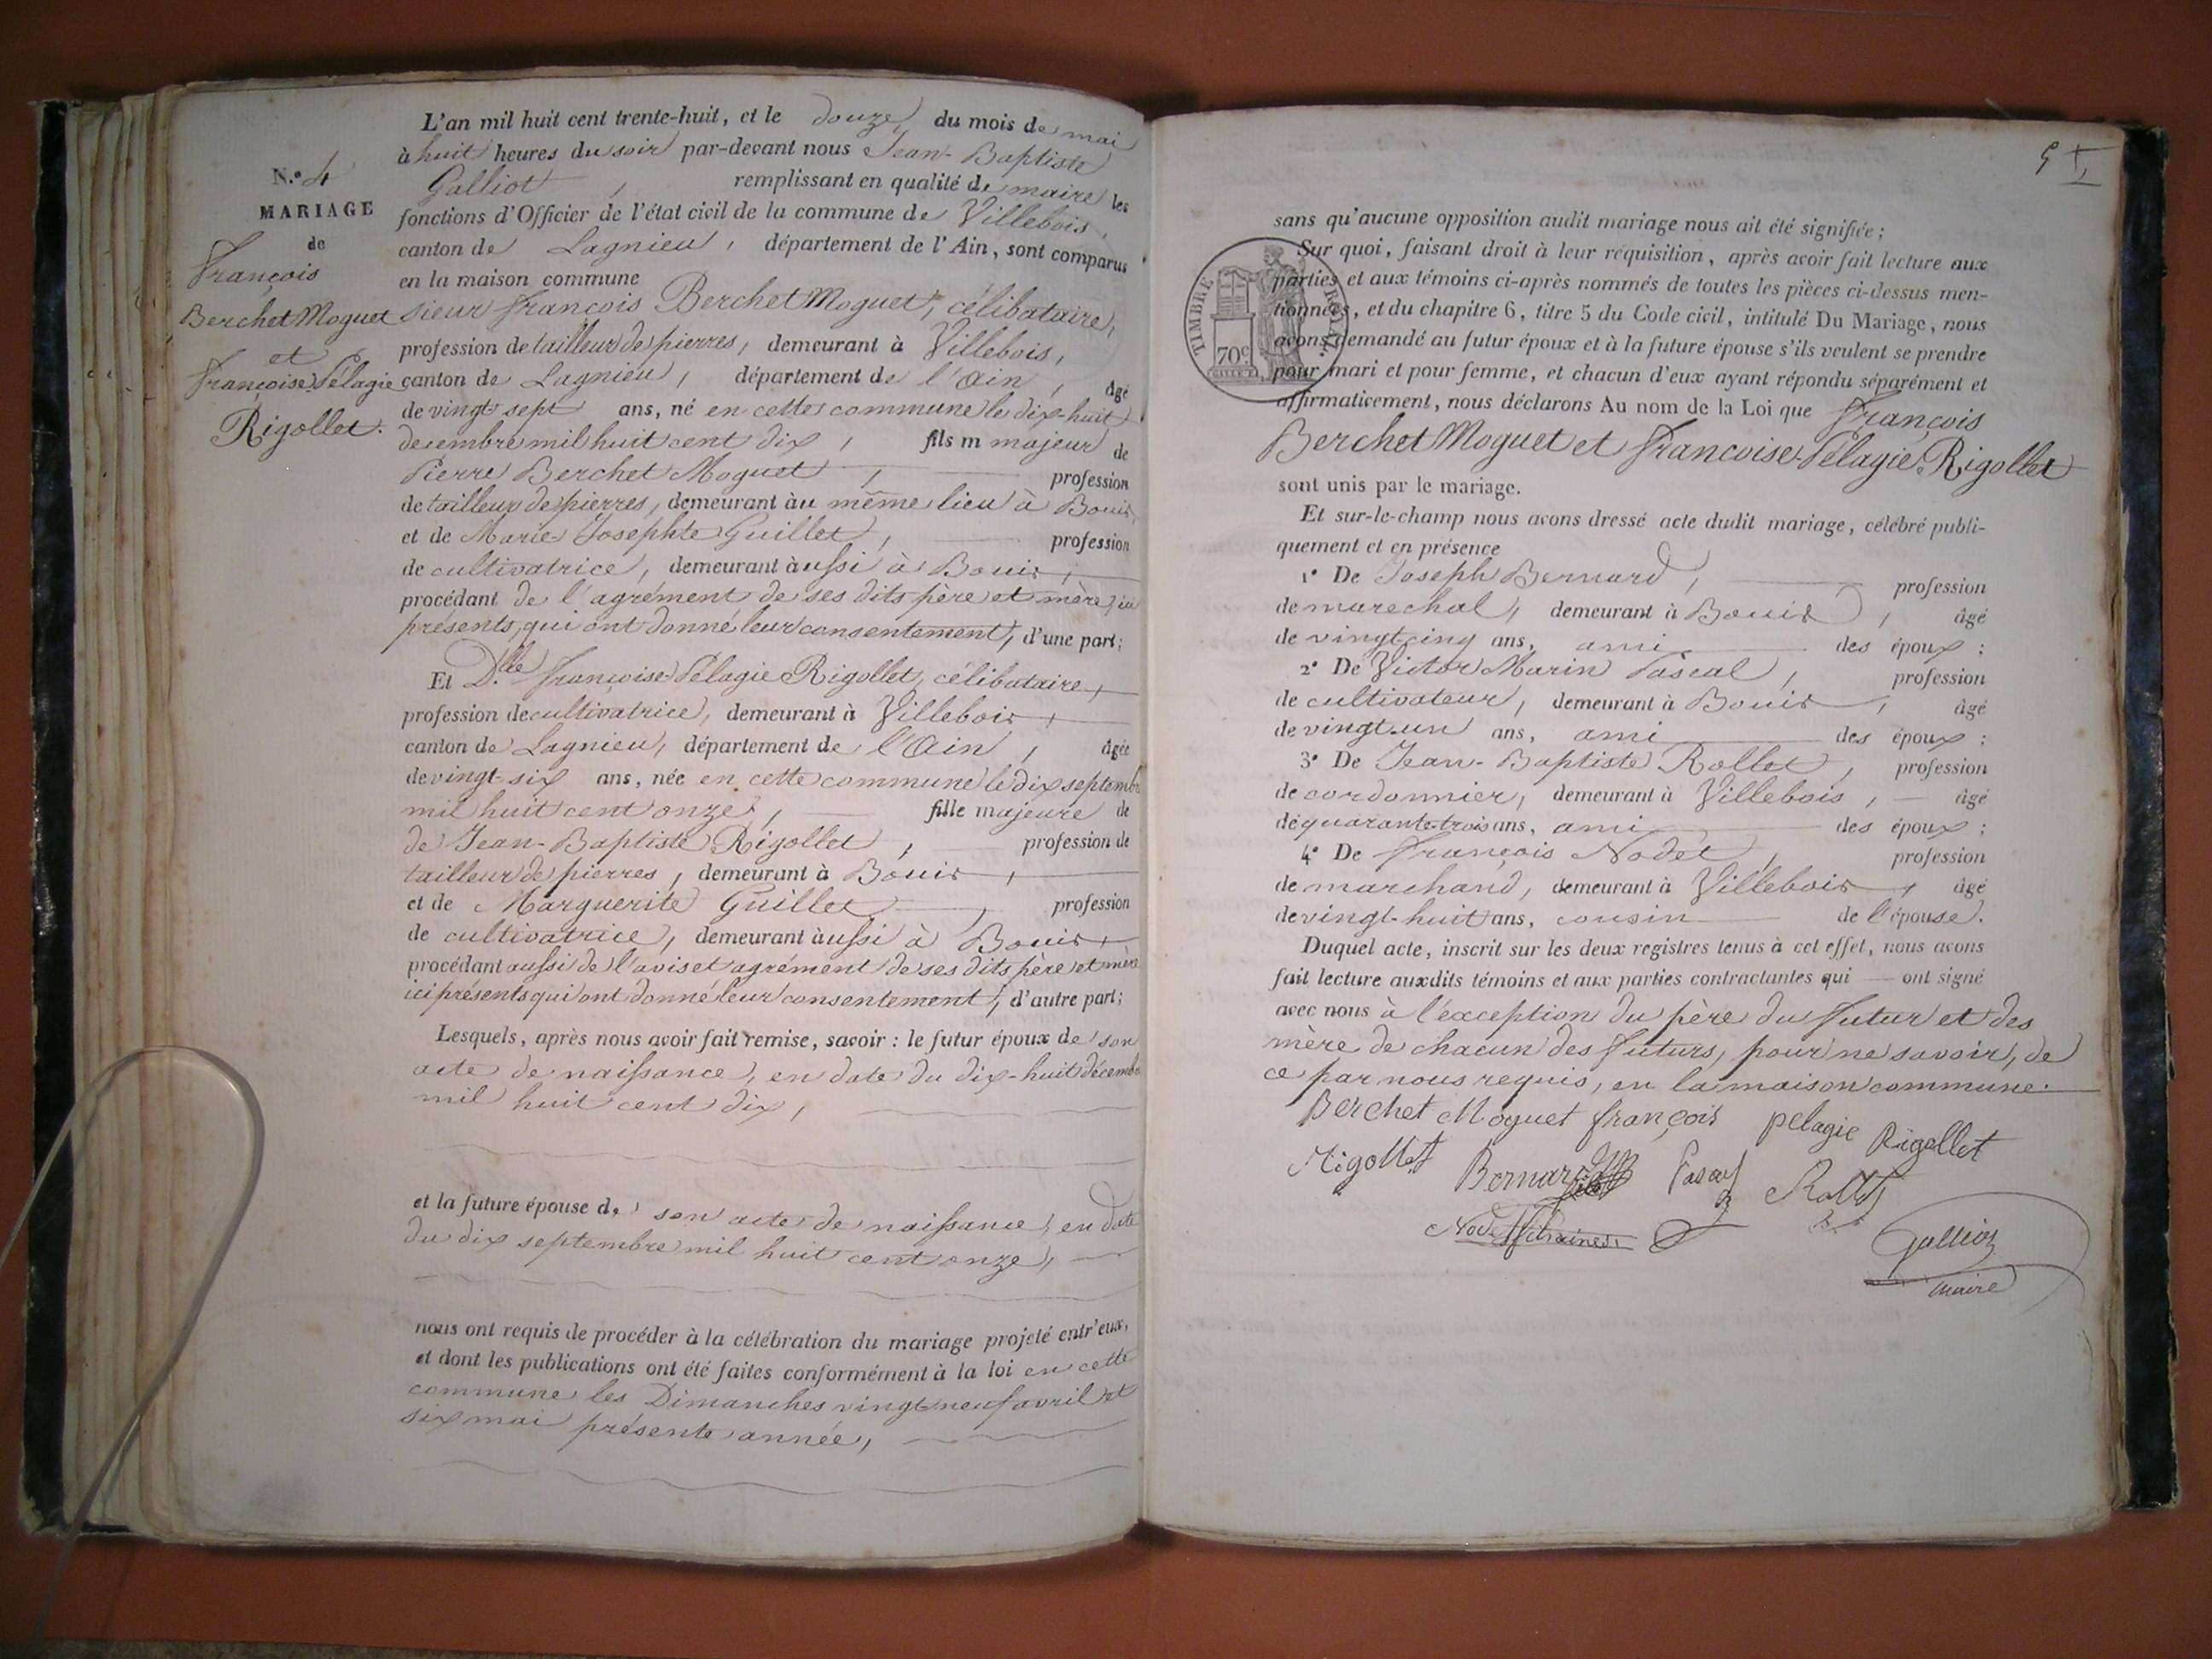 N.º 4
MARIAGE
de
François
Berchet Moguet
et
Françoise Pélagie
Rigollet.
L'an mil huit cent trente-huit, et le douze, du mois de mai
à huit heures du soir par-devant nous Jean-Baptiste
Galliot, remplissant en qualité de maire les
fonctions d'Officier de l'état civil de la commune de Villebois,
canton de Lagnieu, département de l'Ain, sont comparus
en la maison commune
sieur François Berchet Moguet, célibataire,
profession de tailleur de pierres, demeurant à Villebois,
canton de Lagnieu, département de l'Ain, âgé
de vingt sept ans, né en cette commune le dix-huit
décembre mil huit cent dix, fils m majeur de
Pierre Berchet Moguet, profession
de tailleur de pierres, demeurant àu même lieu à Bouis,
et de Marie Josephte Guillet, profession
de cultivatrice, demeurant àussi à Bouis,
procédant de l'agrément de ses dits père et mère, ici
présents, qui ont donné leur consentement, d'une part;
Et D.lle Françoise Pélagie Rigollet, célibataire,
profession de cultivatrice, demeurant à Villebois,
canton de Lagnieu, département de l'Ain, âgée
de vingt-six ans, née en cette commune le dix septembre
mil huit cent onze, fille majeure de
de Jean-Baptiste Rigollet, profession de
tailleur de pierres, demeurant à Bouis,
et de Marguerite Guillet, profession
de cultivatrice, demeurant àussi à Bouis,
procédant aussi de l'avis et agrément de ses dits père et mère
ici présents qui ont donné leur consentement, d'autre part;
Lesquels, après nous avoir fait remise, savoir : le futur époux de son
acte de naissance, en date du dix-huit décembre
mil huit cent dix,
et la future épouse de son acte de naissance, en date
du dix septembre mil huit cent onze,
nous ont requis de procéder à la célébration du mariage projeté entr'eux,
et dont les publications ont été faites conformément à la loi en cette
commune les Dimanches vingt neuf avril et
six mai présente année,
5
TIMBRE ROYAL
70c
sans qu'aucune opposition audit mariage nous ait été signifiée;
Sur quoi, faisant droit à leur réquisition, après avoir fait lecture aux
parties et aux témoins ci-après nommés de toutes les pièces ci-dessus men-
tionnées, et du chapitre 6, titre 5 du Code civil, intitulé Du Mariage, nous
avons demandé au futur époux et à la future épouse s'ils veulent se prendre
pour mari et pour femme, et chacun d'eux ayant répondu séparément et
affirmativement, nous déclarons Au nom de la Loi que François
Berchet Moguet et Françoise-Pélagie Rigollet
sont unis par le mariage.
Et sur-le-champ nous avons dressé acte dudit mariage, célébré publi-
quement et en présence
1º De Joseph Bernard, profession
de marechal, demeurant à Bouis, âgé
de vingt-cinq ans, ami des époux;
2º De Victor Marin Pascal, profession
de cultivateur, demeurant à Bouis, âgé
de vingt-un ans, ami des époux;
3º De Jean-Baptiste Rollet, profession
de cordonnier, demeurant à Villebois, âgé
de quarante-trois ans, ami des époux;
4º De François Nodet, profession
de marchand, demeurant à Villebois, âgé
de vingt-huit ans, cousin de l'épouse.
Duquel acte, inscrit sur les deux registres tenus à cet effet, nous avons
fait lecture auxdits témoins et aux parties contractantes qui ont signé
avec nous à l'exception du père du futur et des
mère de chacun des futurs, pour ne savoir, de
ce par nous requis, en la maison commune.
Berchet Moguet françois pelagie Rigollet
Rigollet Bernard Pascal Rollet
Nodet
Galliot
maire